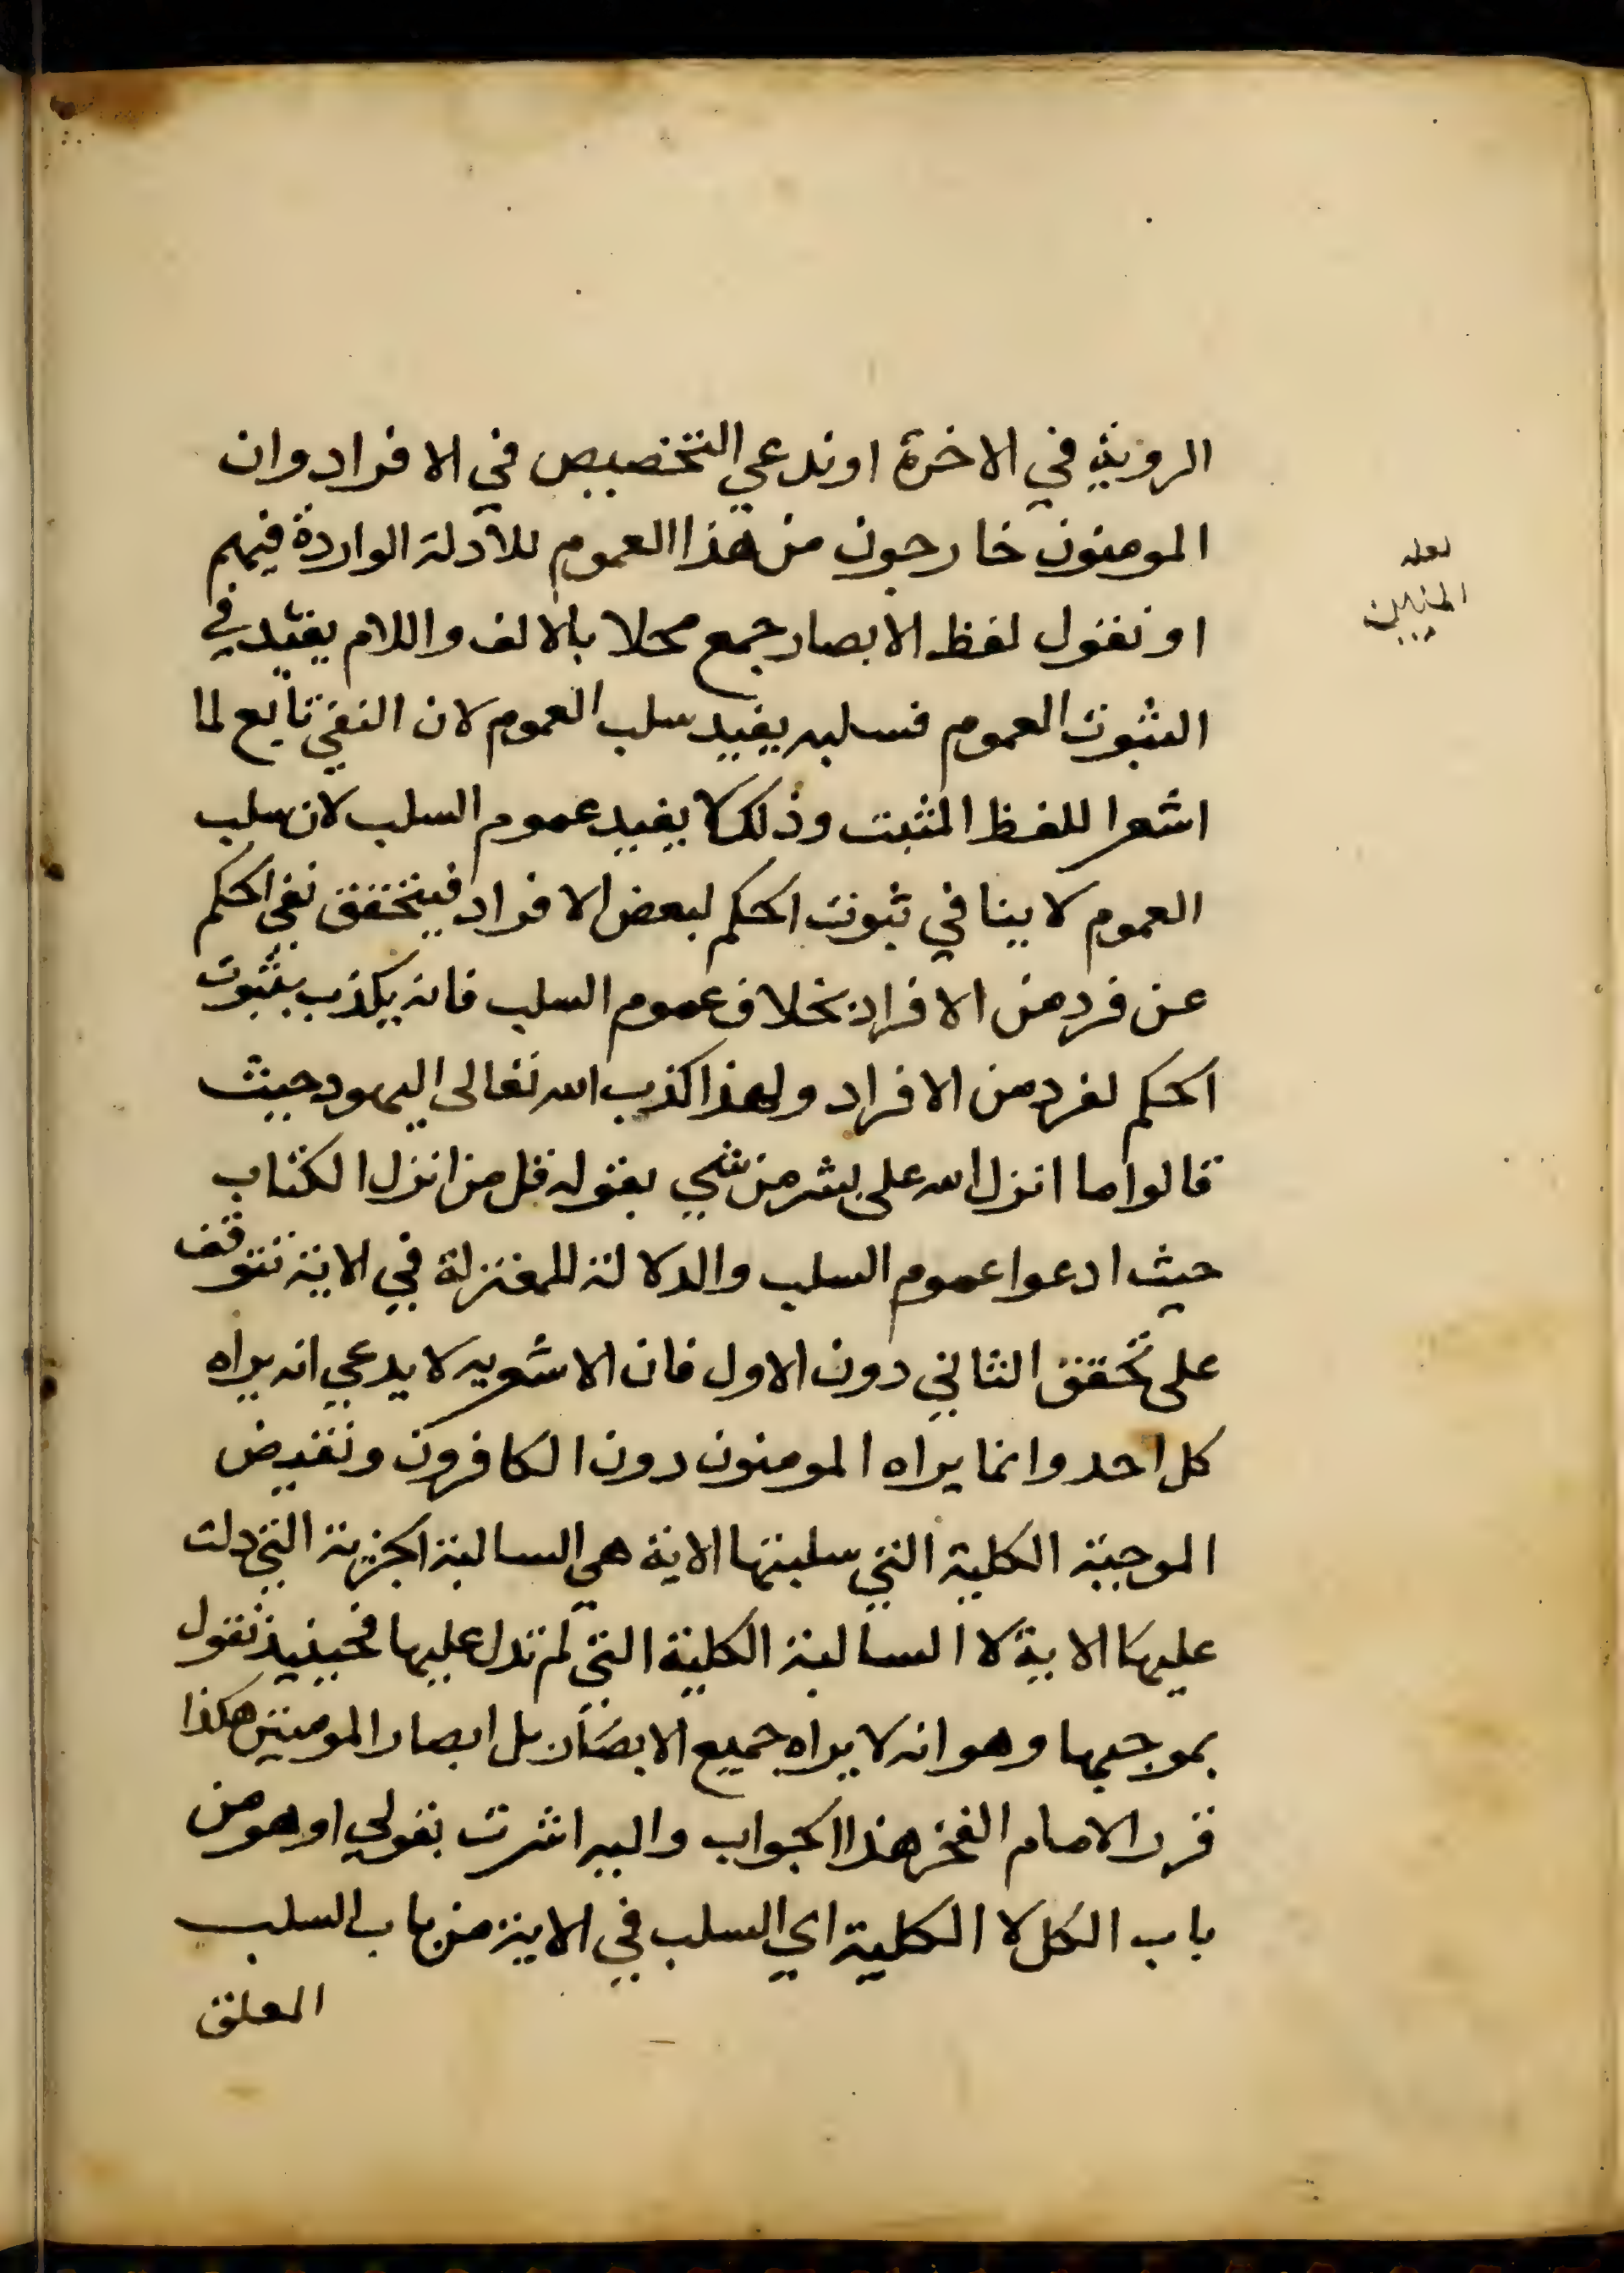 الروية في الاخرة او ندعي التخصيص في الافراد وان
المومنون خارجون من هذا العموم للادلة الواردة فيهم
او نقول لفظ الابصار جمع محلا بالالف واللام يفيد في
الثبوت العموم فسلبه يفيد سلب العموم لان النفي تابع لما
اشعر اللفظ المثبت وذلك لا يفيد عموم السلب لان سلب
العموم لا ينافي ثبوت الحكم لبعض الافراد فيتحقق نفي الحكم
عن فرد من الافراد بخلاف عموم السلب فانه يكذب بثبوت
الحكم لفرد من الافراد ولهذا كذب الله تعالى اليهود حيث
قالوا ما انزل الله على بشر من شي بقوله قل من انزل الكتاب
حيث ادعوا عموم السلب والدلالة للمعتزلة في الاية تتوقف
على تحقق الثاني دون الاول فان الاشعريه لا يدعي انه يراه
كل احد وانما يراه المومنون دون الكافرون ونقيض
الموجبة الكلية التي سلبتها الاية هي السالبة الجزية التي دلت
عليها الاية لا السالبة الكلية التي لم تدل عليها فحينيذ نقول
بموجبها وهو انه لا يراه جميع الابصار بل ابصار المومنين هكذا
قرر الامام الفخر هذا الجواب واليه اشرت بقولي او هو من
باب الكل لا الكلية اي السلب في الاية من باب السلب
المعلق
لعله